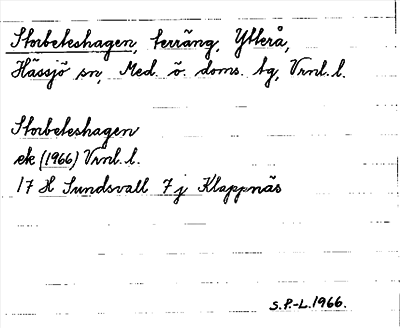 Storbeteshagen, terräng, Ytterå,
Hässjö sn, Med. ö. doms. tg, Vrnl. l.
Storbeteshagen
ek (1966) Vrnl. l.
17 H Sundsvall 7 j Klappnäs
S.P.-L. 1966.